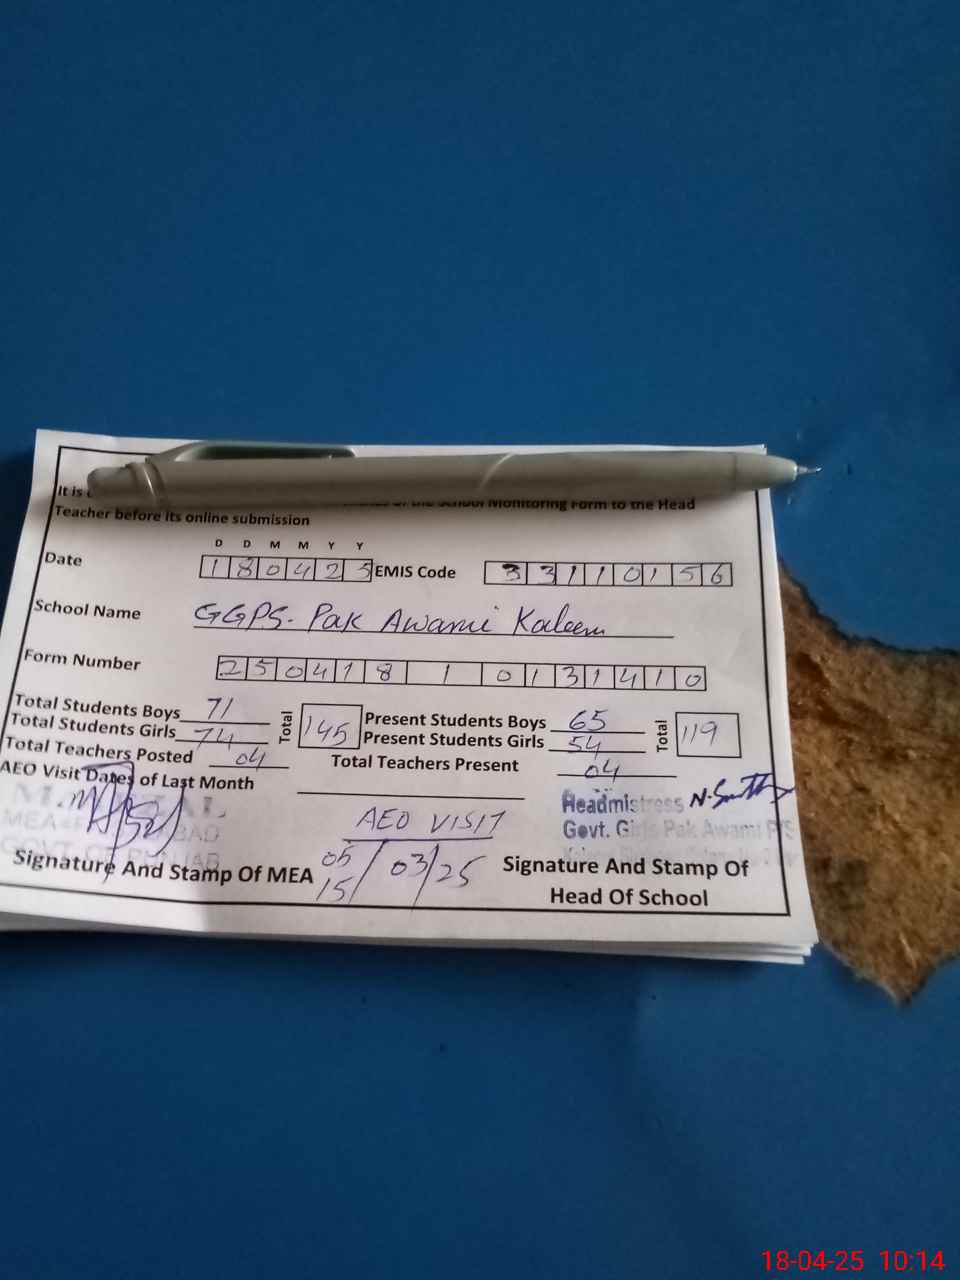 It is
of the School Monitoring Form to the Head
Teacher before its online submission
D D M M Y Y
Date 1 8 0 4 2 5 EMIS Code 3 3 1 1 0 1 5 6
School Name GGPS. Pak Awami Kaleem
Form Number 2 5 0 4 1 8 1 0 1 3 1 4 1 0
Total Students Boys 71 Total 145 Present Students Boys 65 Total 119
Total Students Girls 74 Present Students Girls 54
Total Teachers Posted 04 Total Teachers Present 04
AEO Visit Dates of Last Month
AEO VISIT
05/15 /03/25
Headmistress
Govt. Girls Pak Awami P/S
Signature And Stamp Of MEA
Signature And Stamp Of
Head Of School
18-04-25 10:14